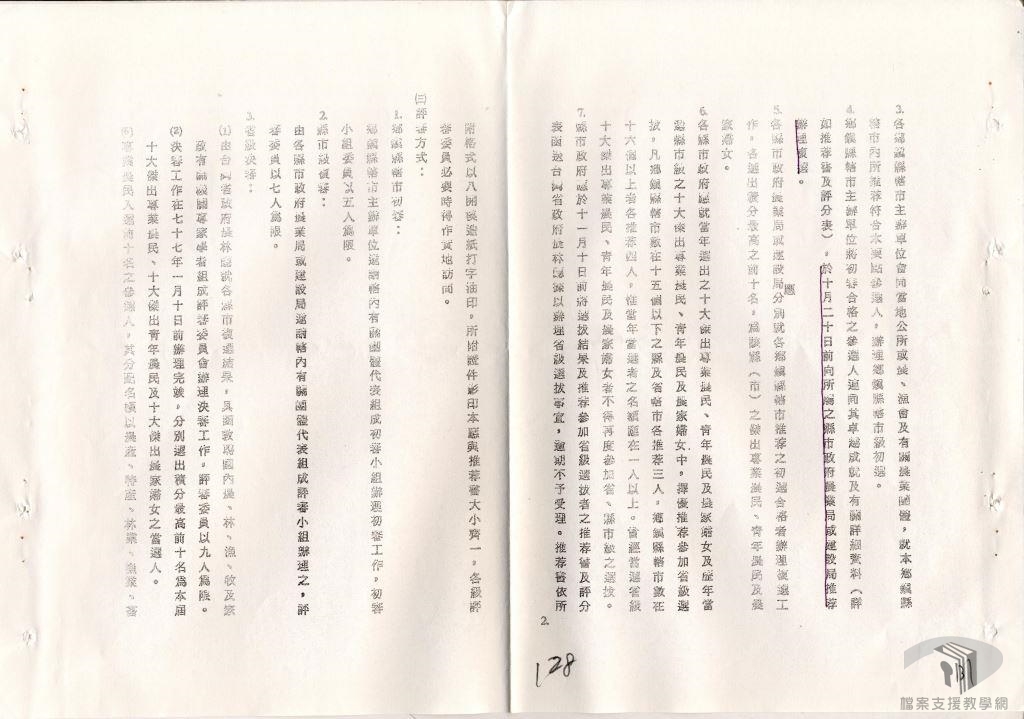 3.各鄉鎮縣轄市主辦單位會同當地公所或農、漁會及有關農業團體,就本鄉鎮縣
轄市內所推荐符合本要點參選人,辦理鄉鎮縣轄市級初選。
4.鄉鎮縣轄市主辦單位將初審合格之參選人連同其卓越成就及有關詳細資料(詳
如推荐書及評分表),於十月二十日前向所屬之縣市政府農業局或建設局推荐
辦理複選。
5.各縣市政府農業局或建設局應分別就各鄉鎮縣轄市推荐之初選合格者辦理複選工
作,各選出積分最高之前十名,為該縣(市)之傑出專業農民、青年農民及農
家婦女。
6.各縣市政府應就當年選出之十大傑出專業農民、青年農民及農家婦女及歷年當
選縣市級之十大傑出專業農民、青年農民及農家婦女中,擇優推荐參加省級選
拔,凡鄉鎮縣轄市數在十五個以下之縣及省轄市各推荐三人,鄉鎮縣轄市數在
十六個以上者各推荐四人,惟當年當選者之名額應在一人以上。曾經當選省級
十大傑出專業農民、青年農民及農家婦女者不得再度參加省、縣市級之選拔。
7.縣市政府應於十一月十日前將選拔結果及推荐參加省級選拔者之推荐書及評分
表函送台灣省政府農林廳據以辦理省級選拔事宜,逾期不予受理。推荐書依所
2.
128
附格式以八開模造紙打字油印,所附證件影印本應與推荐書大小齊一,各級評
審委員必要時得作實地訪問。
㈢評審方式:
1.鄉鎮縣轄市初審:
鄉鎮縣轄市主辦單位邀請轄內有關團體代表組成初審小組辦理初審工作,初審
小組委員以五人為限。
2.縣市級複審:
由各縣市政府農業局或建設局邀請轄內有關團體代表組成評審小組辦理之,評
審委員以七人為限。
3.省級決審:
(1)由台灣省政府農林廳就各縣市複選結果,具函敦聘國內農、林、漁、牧及家
政有關機關專家學者組成評審委員會辦理決審工作,評審委員以九人為限。
(2)決審工作在七十七年一月十日前辦理完竣,分別選出積分最高前十名為本屆
十大傑出專業農民、十大傑出青年農民及十大傑出農家婦女之當選人。
專業農民入選前十名之參選人,其分配名額以農產、特產、林業、漁業、畜
131
檔案支援教學網